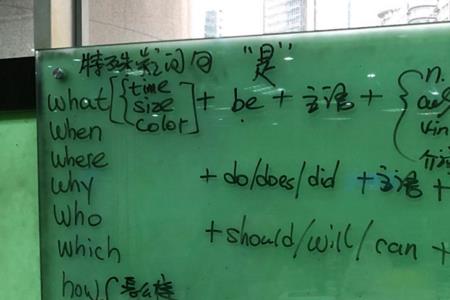 特殊疑问句 "是"
what [time size color] + be + 主语 + { n.
When
where
why + do/does/did + 主语 +
Who
which + should/will/can +
how { 怎么样